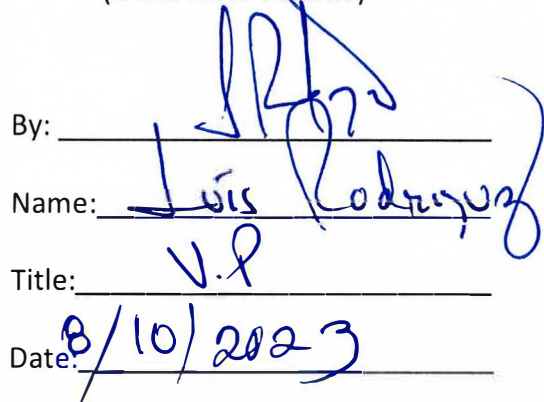 By:
Name: Luis Rodriguez
Title: V.P
Date: 8/10/2023